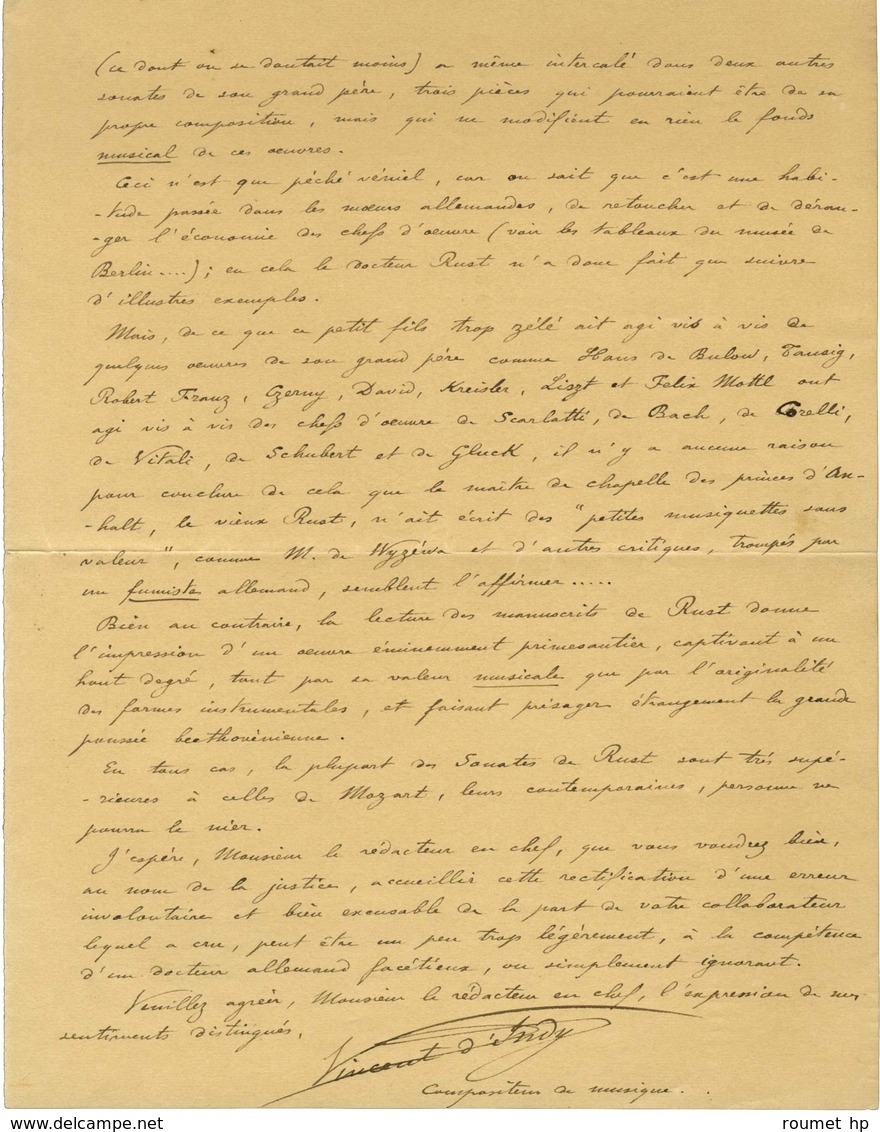 (ce dont on se doutait moins) a même intercalé dans deux autres
sonates de son grand père, trois pièces qui pourraient être de sa
propre composition, mais qui ne modifient en rien le fonds
musical de ces oeuvres.
Ceci n'est que péché véniel, car on sait que c'est une habi-
-tude passée dans les mœurs allemandes, de retoucher et de déran-
-ger l'économie des chefs d'oeuvre (voir les tableaux du musée de
Berlin....); en cela le docteur Rust n'a donc fait que suivre
d'illustres exemples.
Mais, de ce que ce petit fils trop zélé ait agi vis à vis de
quelques oeuvres de son grand père comme Hans de Bulow, Tausig,
Robert Franz, Czerny, David, Kreisler, Liszt et Felix Mottl ont
agi vis à vis des chefs d'oeuvre de Scarlatti, de Bach, de Corelli,
de Vitali, de Schubert et de Gluck, il n'y a aucune raison
pour conclure de cela que le maître de chapelle des princes d'An-
-halt, le vieux Rust, n'ait écrit des "petites musiquettes sans
valeur", comme M. de Wyzéwa et d'autres critiques, trompés par
un fumiste allemand, semblent l'affirmer.....
Bien au contraire, la lecture des manuscrits de Rust donne
l'impression d'un oeuvre éminemment primesautier, captivant à un
haut degré, tant par sa valeur musicale que par l'originalité
des formes instrumentales, et faisant présager étrangement la grande
poussée beethovénienne.
En tous cas, la plupart des Sonates de Rust sont très supé-
-rieures à celles de Mozart, leurs contemporaines, personne ne
pourra le nier.
J'espére, Monsieur le rédacteur en chef, que vous voudrez bien,
au nom de la justice, accueillir cette rectification d'une erreur
involontaire et bien excusable de la part de votre collaborateur
lequel a cru, peut être un peu trop légèrement, à la compétence
d'un docteur allemand facétieux, ou simplement ignorant.
Veuillez agréer, Monsieur le rédacteur en chef, l'expression de mes
sentiments distingués,
Vincent d'Indy
compositeur de musique.
roumet hp